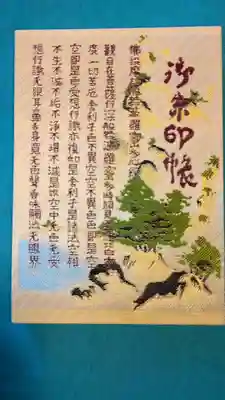 御朱印帳
佛説摩訶般若波羅蜜多心経
觀自在菩薩行深般若波羅蜜多時照見五蘊皆空
度一切苦厄舎利子色不異空空不異色色即是空
空即是色受想行識亦復如是舎利子是諸法空相
不生不滅不垢不浄不増不減是故空中无色无受
想行識无眼耳鼻舌身意无色聲香味觸法无眼界